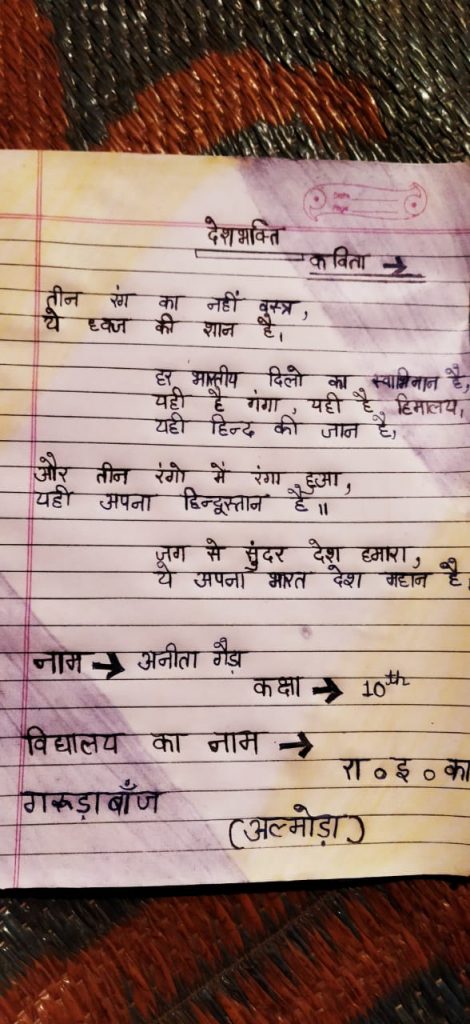 देशभक्ति
कविता →
तीन रंग का नहीं वस्त्र,
ये ध्वज की शान है,
हर भारतीय दिलो का स्वाभिमान है,
यही है गंगा, यही है हिमालय,
यही हिन्द की जान है,
और तीन रंगो में रंगा हुआ,
यही अपना हिन्दूस्तान है॥
जग से सुंदर देश हमारा,
ये अपना भारत देश महान है।
नाम → अनीता गैड़ा
कक्षा → 10th
विद्यालय का नाम →
रा ० इ ० का
गरूड़ाबाँज
(अल्मोड़ा)